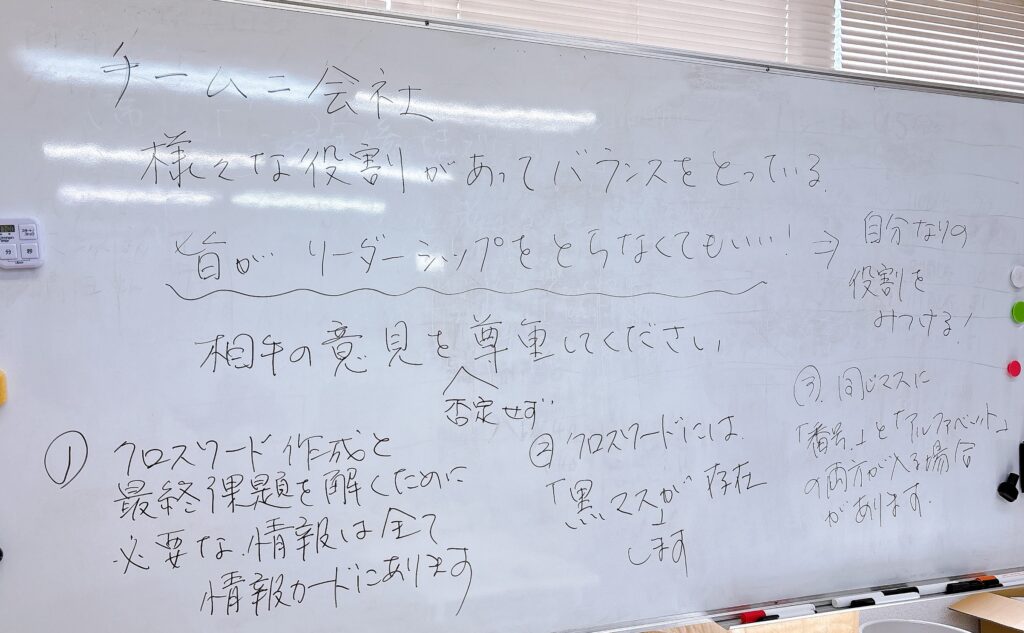 チーム=会社
様々な役割があってバランスをとっている.
皆がリーダーシップをとらなくてもいい! ⇒ 自分なりの
役割を
みつける!
相手の意見を尊重してください
否定せず
① クロスワード作成と
最終課題を解くために
必要な情報は全て
情報カードにあります
② クロスワードには
「黒マス」が存在
します
③ 同じマスに
「番号」と「アルファベット」
の両方が入る場合
があります.